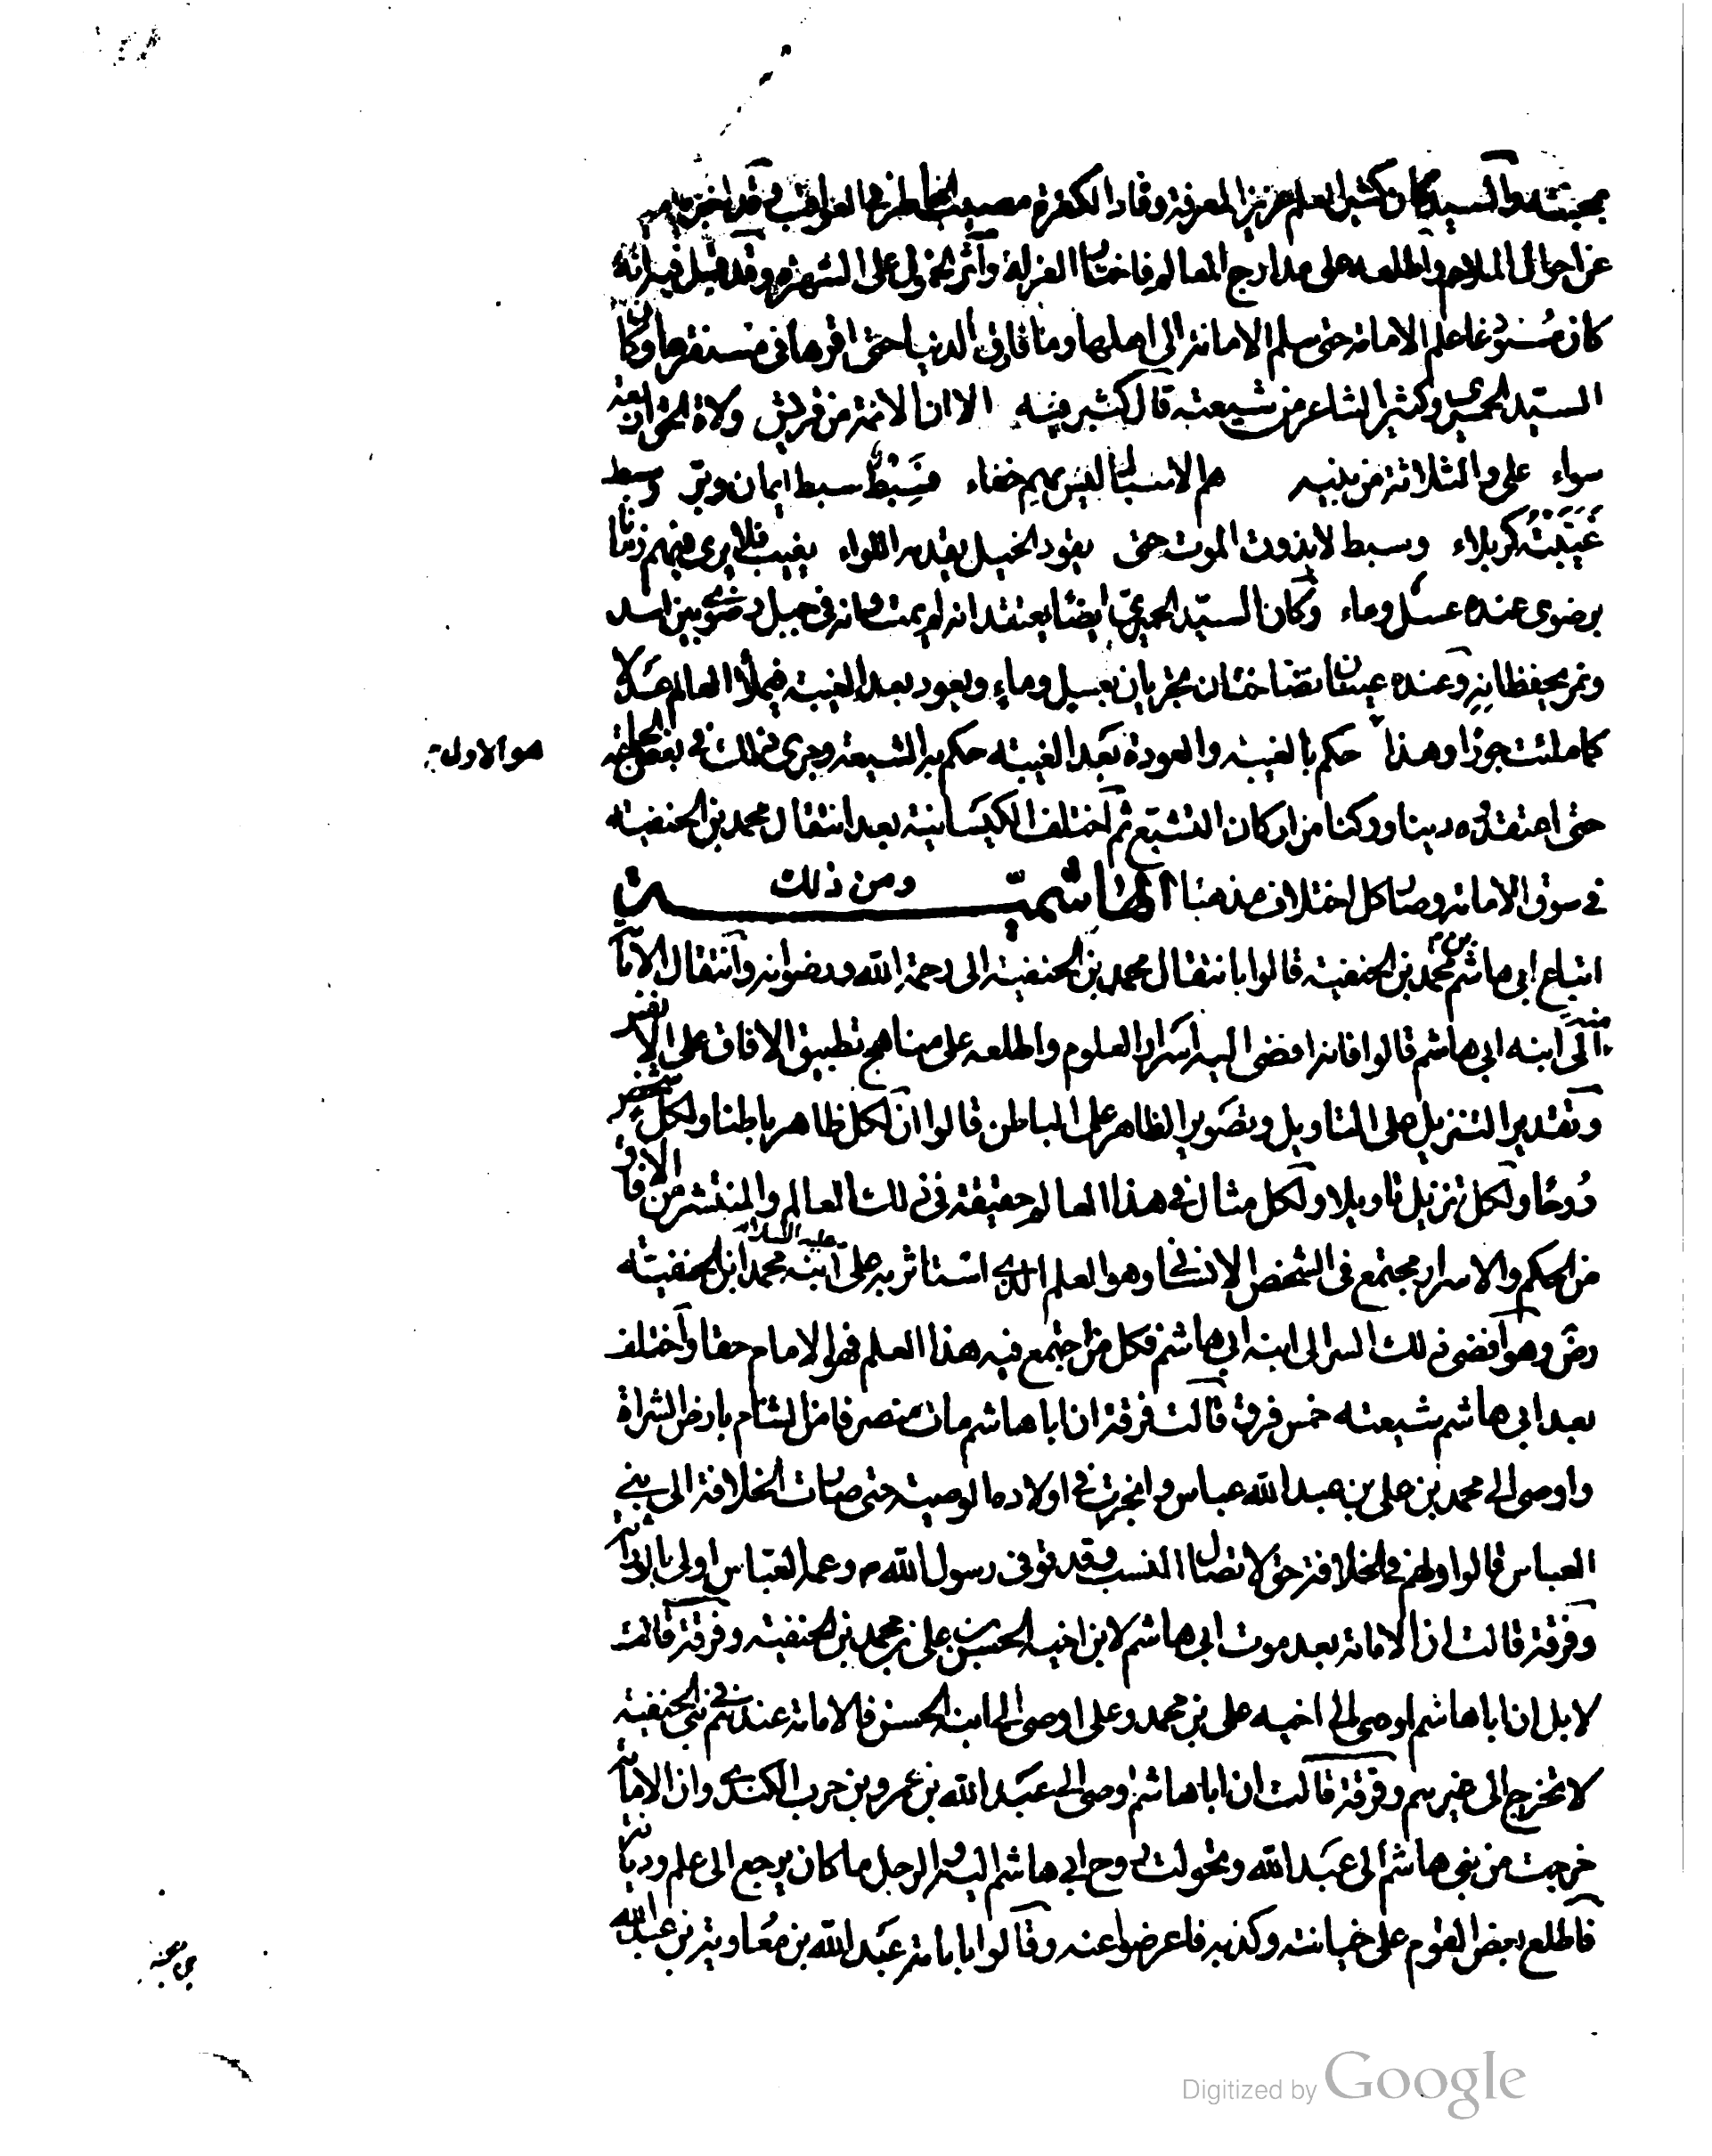 بمحبته والسيد كان كثير العلم عزيز المعرفة وقاد الفكرة مصيب الخاطر في العواقب قد اخبره امير
عن احوال الملاحم واطلعه على مدارج المعالم فاختار العزلة وآثر الخمول على الشهرة وقد قيل فيه انه
كان مستودعا علم الامامة حتى سلم الامانة الى اهلها وما فارق الدنيا حتى اقرها في مستقرها وكان
السيد الحميري وكثير الشاعر من شيعته قال كثير فيه الا ان الائمة من قريش ولاة الحق اربعة
سواء علي والثلاثة من بنيه هم الاسباط ليس بهم خفاء فسبط سبط ايمان وبر وسبط
غيبته كربلاء وسبط لا يذوق الموت حتى يقود الخيل يقدمه اللواء يغيب فلا يرى فيهم زمانا
برضوى عنده عسل وماء وكان السيد الحميري ايضا يعتقد انه لم يمت وانه في جبل رضوى بين اسد
ونمر يحفظانه وعنده عينان نضاختان تجريان بعسل وماء ويعود بعد الغيبة فيملأ العالم عدلا
كما ملئت جورا وهذا حكم بالغيبة والعودة بعد الغيبة حكم به الشيعة وجرى ذلك في بعض الجماعة
هو الاول
حتى اعتقدوه دينا وركنا من اركان التشيع ثم اختلف الكيسانية بعد انتقال محمد بن الحنفية
في سوق الامامة وصار كل اختلاف مذهبا ومن ذلك الهاشمية
اتباع ابي هاشم بن محمد بن الحنفية قالوا بانتقال محمد بن الحنفية الى رحمة الله ورضوانه وانتقال الامامة
منه الى ابنه ابي هاشم قالوا فانه افضى اليه اسرار العلوم واطلعه على مناهج تطبيق الافاق على الانفس
وتقدير التنزيل على التاويل وتصوير الظاهر على الباطن قالوا ان لكل ظاهر باطنا ولكل شخص
روحا ولكل تنزيل تاويلا ولكل مثال في هذا العالم حقيقة في ذلك العالم والمنتشر من الافاق
من الحكم والاسرار مجتمع في الشخص الانساني وهو العلم الذي استاثر به علي عليه السلام ابنه محمد ابن الحنفية
رض وهو افضى ذلك السر الى ابنه ابي هاشم فكل من اجتمع فيه هذا العلم فهو الامام حقا واختلف
بعد ابي هاشم شيعته خمس فرق قالت فرقة ان ابا هاشم مات منصرفا من الشام بارض الشراة
واوصى الى محمد بن علي بن عبد الله عباس وانجرت في اولاده الوصية حتى صارت الخلافة الى بني
العباس قالوا ولهم في الخلافة حق لاتصال النسب وقد توفي رسول الله م وعمه العباس اولى بالوراثة
وفرقة قالت ان الامامة بعد موت ابي هاشم لابن اخيه الحسن بن علي بن محمد بن الحنفية وفرقة قالت
لا بل ان ابا هاشم اوصى الى اخيه علي بن محمد وعلي اوصى الى ابنه الحسن فالامامة عندهم في بني الحنفية
لا تخرج الى غيرهم وفرقة قالت ان ابا هاشم اوصى الى عبد الله بن عمرو بن حرب الكندي وان الامامة
خرجت من بني هاشم الى عبد الله وتحولت روح ابي هاشم اليه والرجل ما كان يرجع الى علم وديانة
فاطلع بعض القوم على خيانته وكذبه فاعرضوا عنه وقالوا بامامة عبد الله بن معاوية بن عبد الله
Digitized by Google